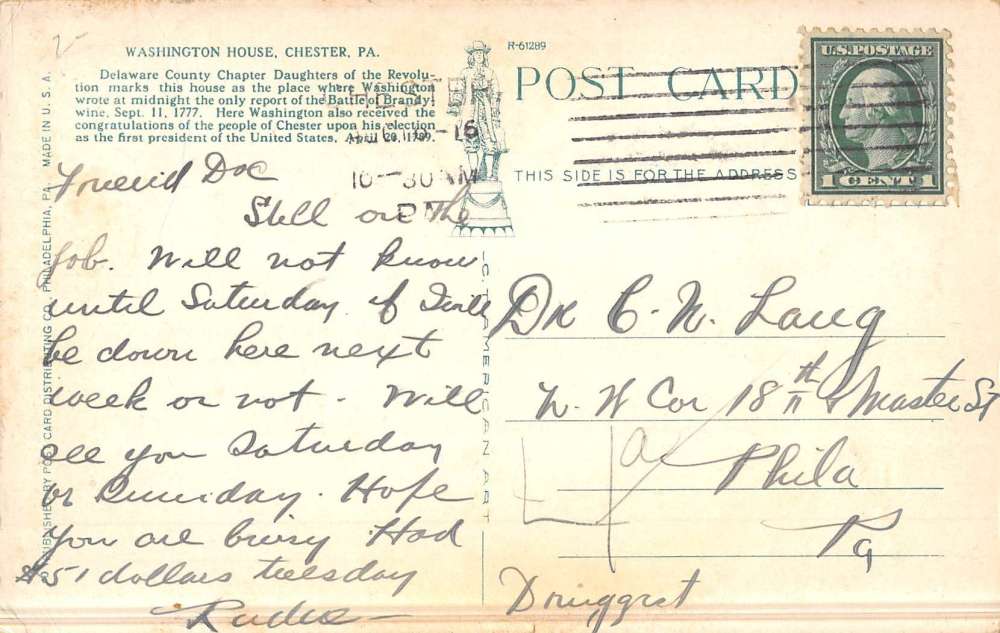 2-
WASHINGTON HOUSE, CHESTER, PA.
Delaware County Chapter Daughters of the Revolu-
tion marks this house as the place where Washington
wrote at midnight the only report of the Battle of Brandy-
wine, Sept. 11, 1777. Here Washington also received the
congratulations of the people of Chester upon his election
as the first president of the United States, April 20, 1789.
R-61289
POST CARD
THIS SIDE IS FOR THE ADDRESS
U.S. POSTAGE
1 CENT 1
10-30 AM
Friend Doc
Still on the
job. Will not know
until Saturday if I will
be down here next
week or not - Will
see you Saturday
or Sunday. Hope
you are busy Had
$51 dollars tuesday
Dr C. N. Laug
N. W Cor 18th & Master St
Phila
Pa
Druggist
PUBLISHED BY POST CARD DISTRIBUTING CO., PHILADELPHIA, PA. MADE IN U. S. A.
C. T. AMERICAN ART